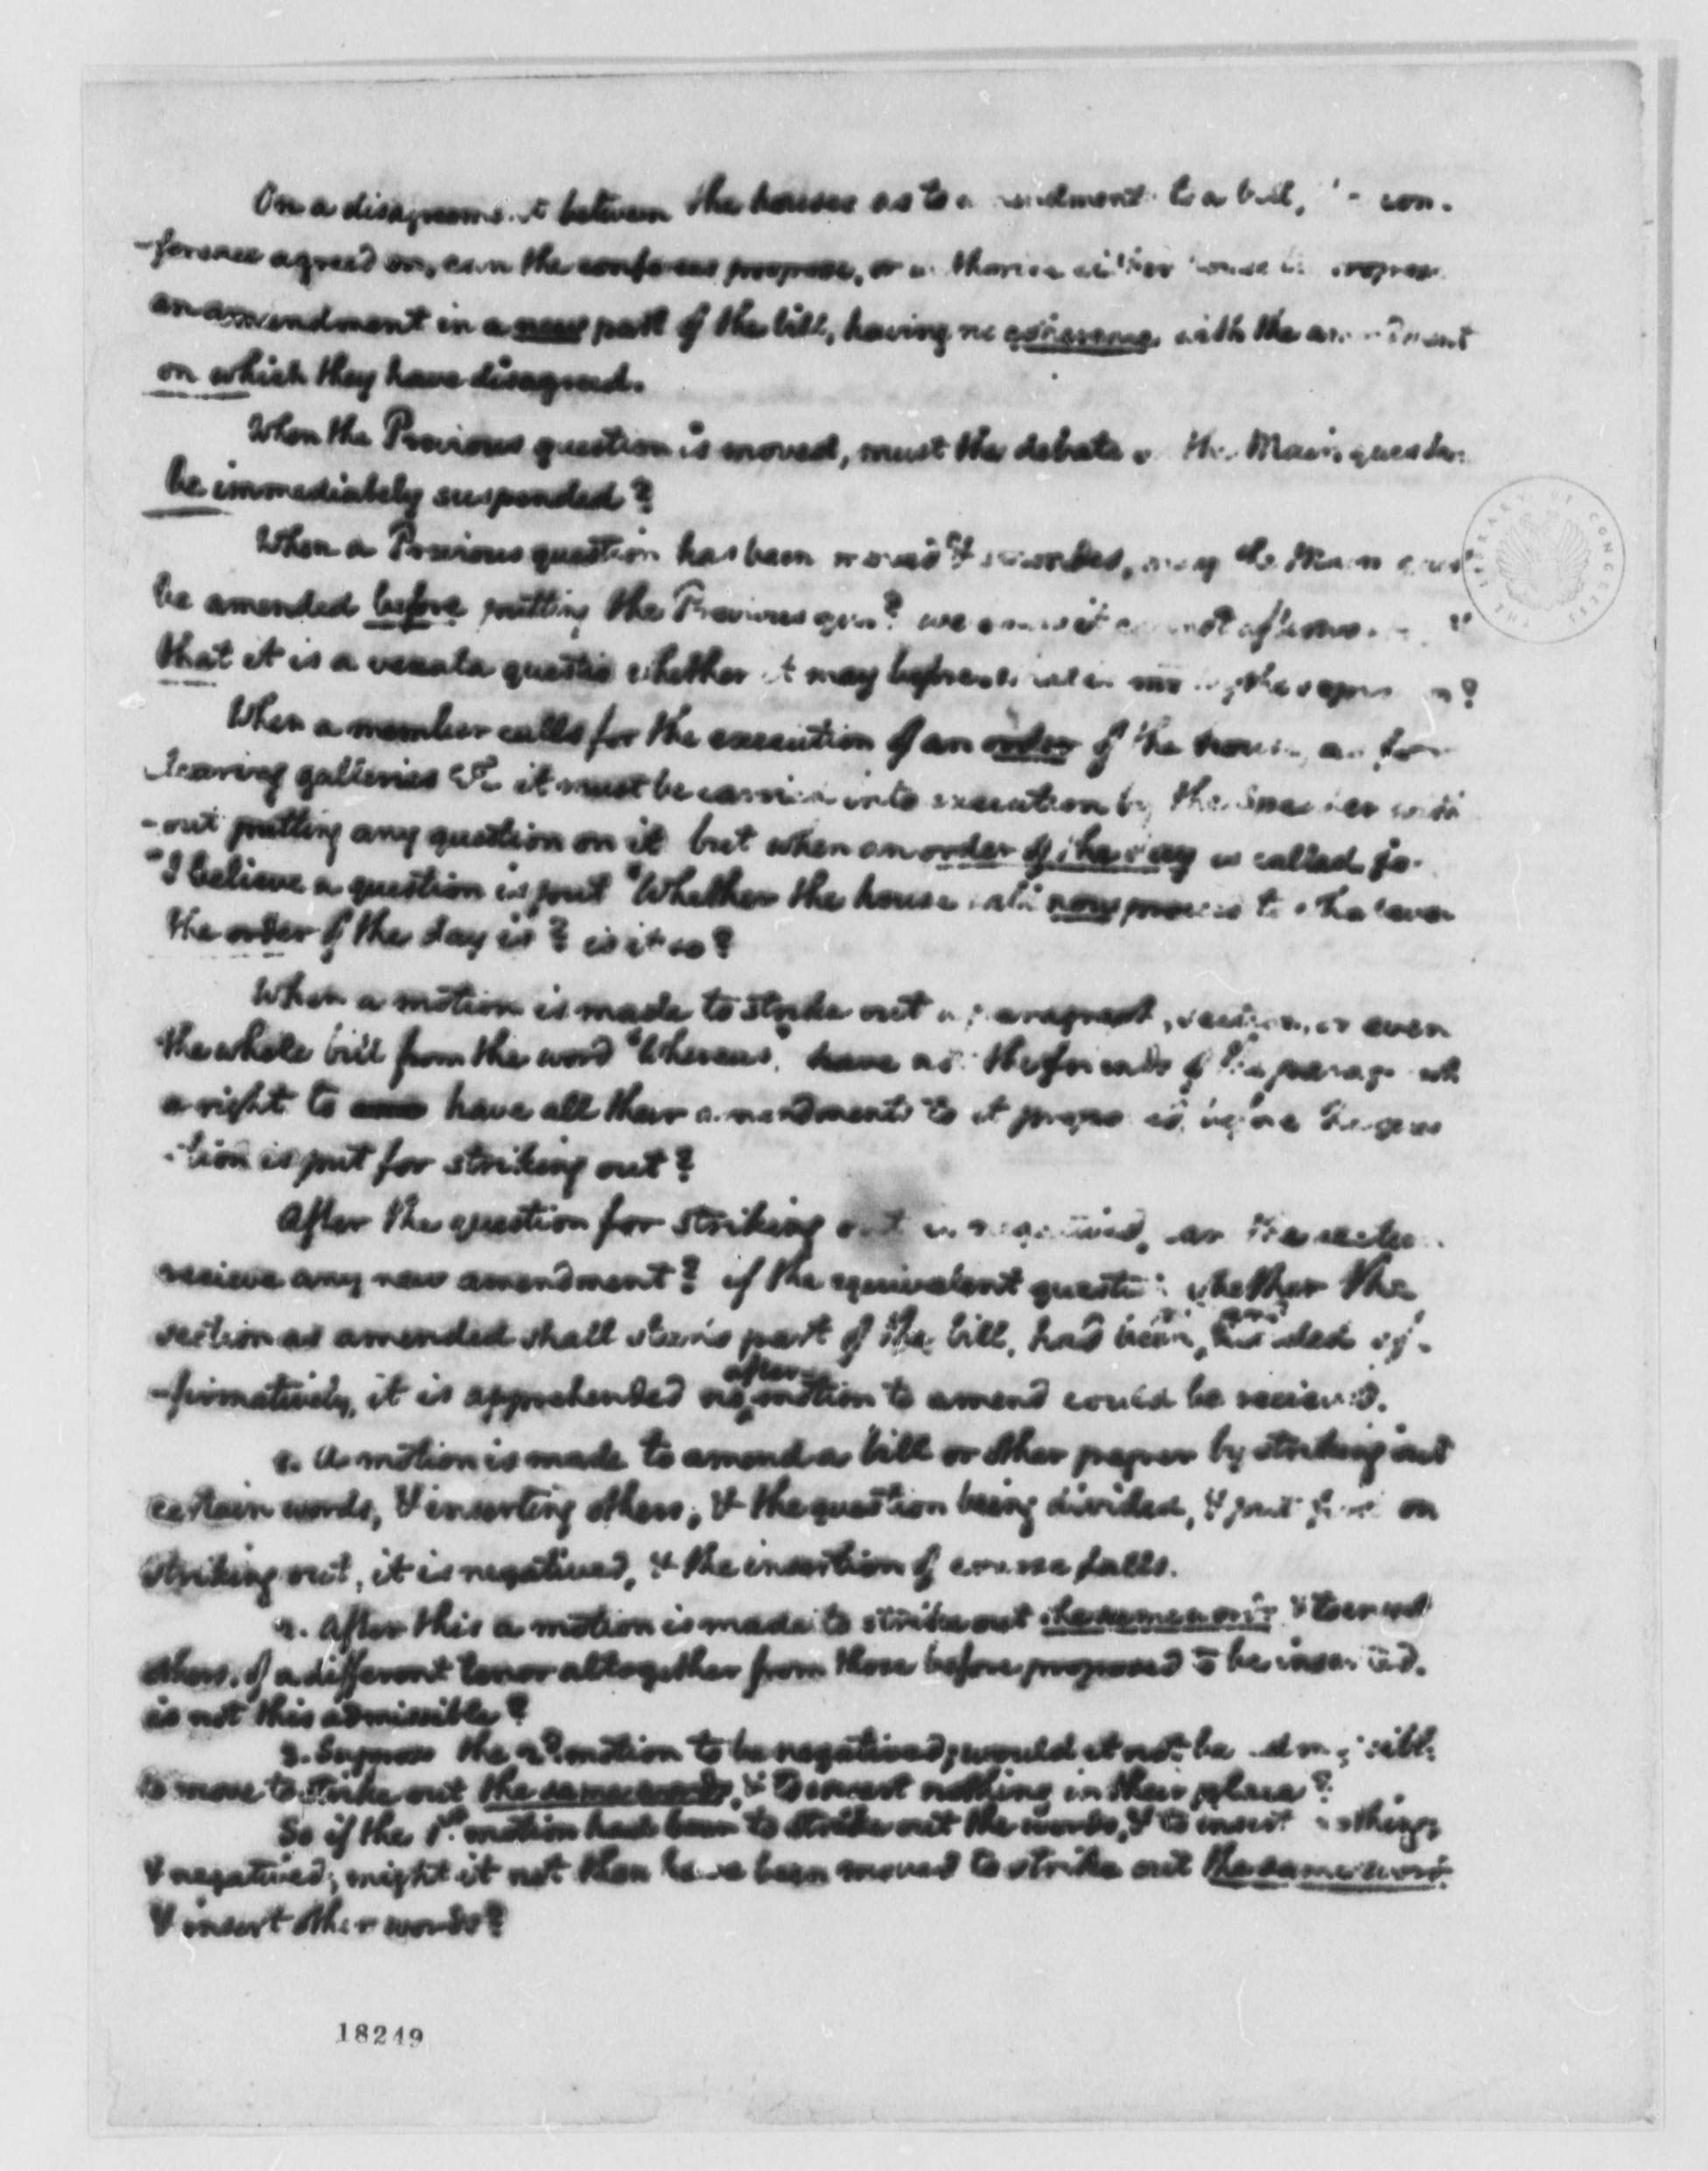 On a disagreement between the houses as to amendment to a bill, con-
-ference agreed on, can the conferees propose, or either house
an amendment in a new part of the bill, having no coherence with the amendment
on which they have disagreed.
When the Previous question is moved, must the debate the Main question
be immediately suspended?
When a Previous question has been moved & seconded, may the Main
be amended before putting the Previous qu?
that it is a vexata questio whether it may before
When a member calls for the execution of an order of the house, as for
clearing galleries &c it must be carried into execution by the Speaker with
-out putting any question on it but when an order of the day is called for
"I believe a question is put "Whether the house will now proceed to whatever
the order of the day is? is it so?
When a motion is made to strike out a paragraph, section, or even
the whole bill from the word "Whereas", have not the friends of the paragraph
a right to have all their amendments to it proposed before the ques
-tion is put for striking out?
After the question for striking out is negatived, can the section
recieve any new amendment? if the equivalent question whether the
section as amended shall stand part of the bill, had been decided af-
after
-firmatively, it is apprehended no motion to amend could be recieved.
1. A motion is made to amend a bill or other paper by striking out
certain words, & inserting others; & the question being divided, & put first on
striking out, it is negatived, & the insertion of course falls.
2. After this a motion is made to strike out the same words & to insert
others, of a different tenor altogether from those before proposed to be inserted.
is not this admissible?
3. Suppose the 2d. motion to be negatived; would it not be admissible
to move to strike out the same words, & to insert nothing in their place?
So if the 1st. motion had been to strike out the words, & to insert nothing,
& negatived; might it not then have been moved to strike out the same words
& insert other words?
THE LIBRARY OF CONGRESS
18249